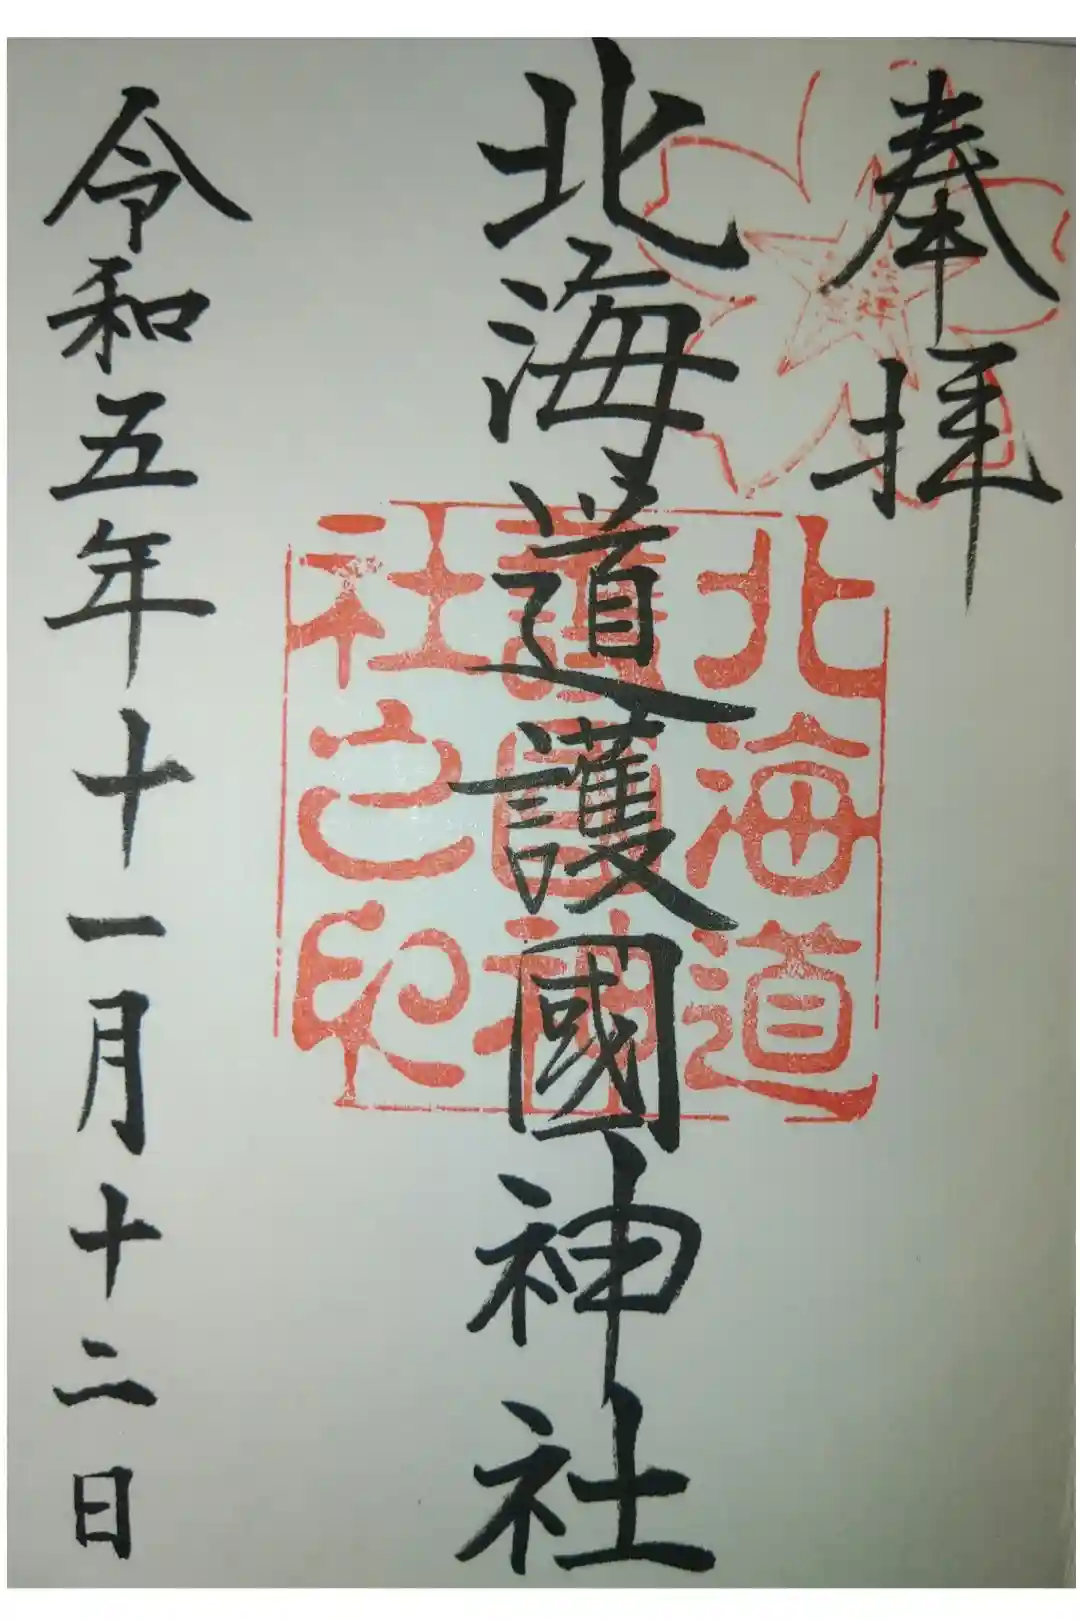 奉拝
北海道護國神社
北海道
護國神
社之印
令和五年十一月十二日